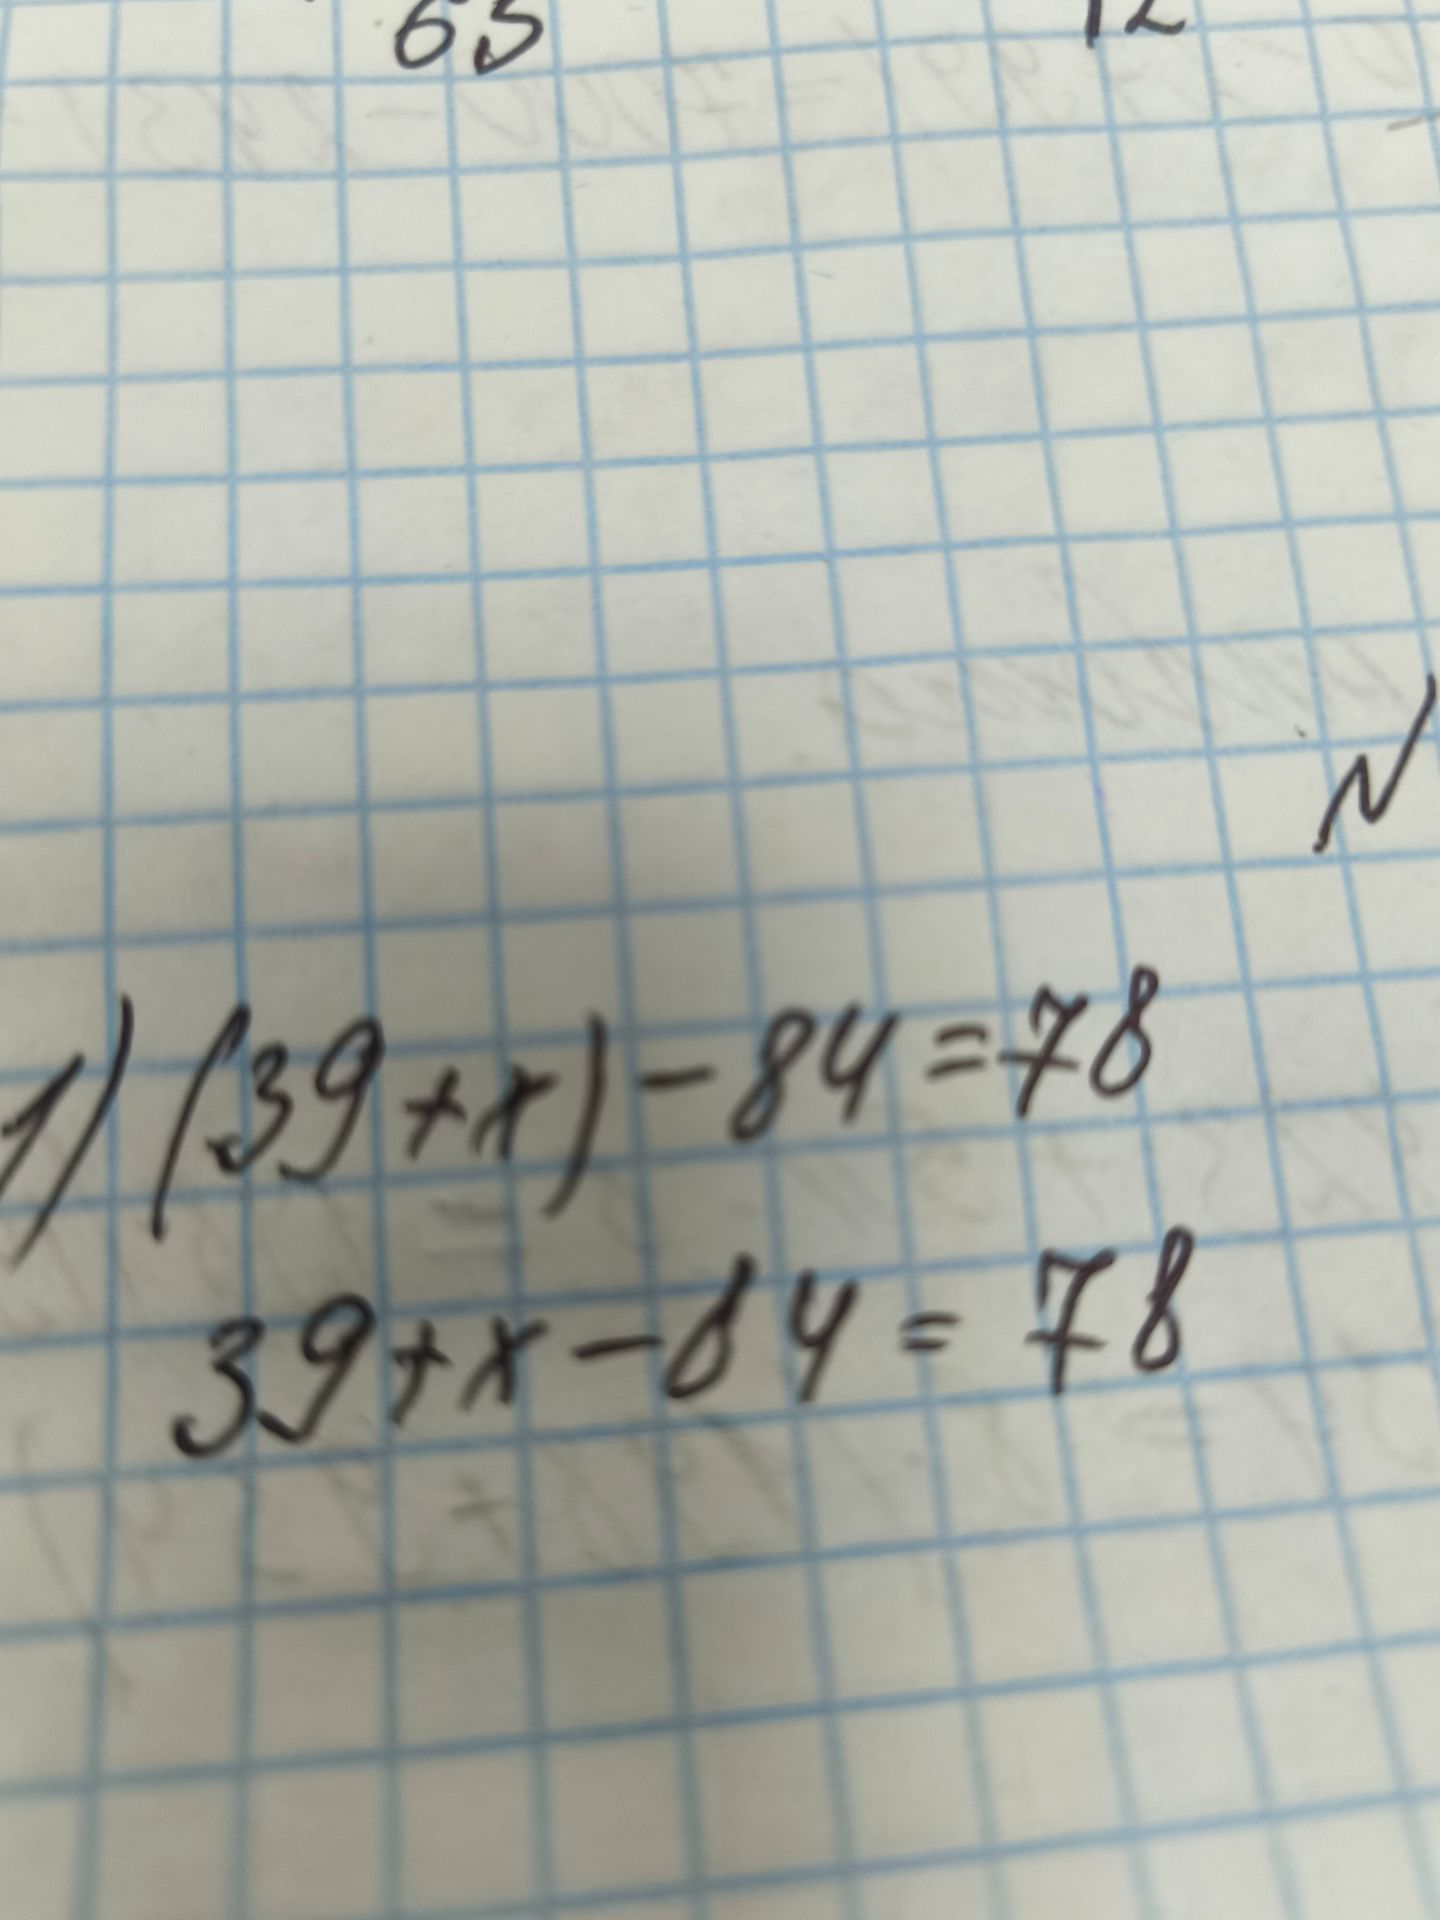 65 12
N
1) (39+x)-84=78
39+x-84=78